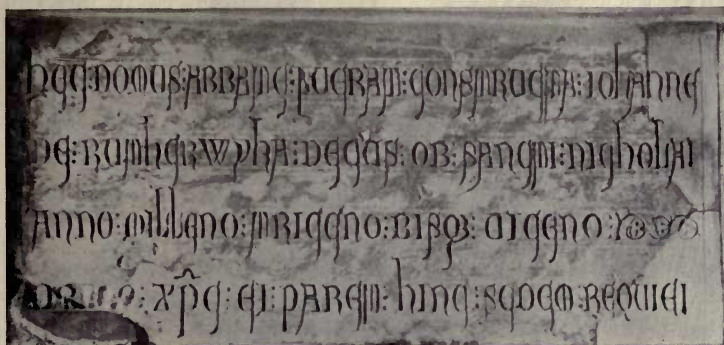 hEC:DOMUS:ABBATE:FUERAT:CONSTRUCTA:IOhANNE
DE:RUThERWYKA:DECUS:OB:SANCTI:NIChOLAI
ANNO:MILLENO:TRICENO:BISQ:VICENO:
PRIMO:XP̄C:EI:PARET:hINC:SEDEM:REQUIEI